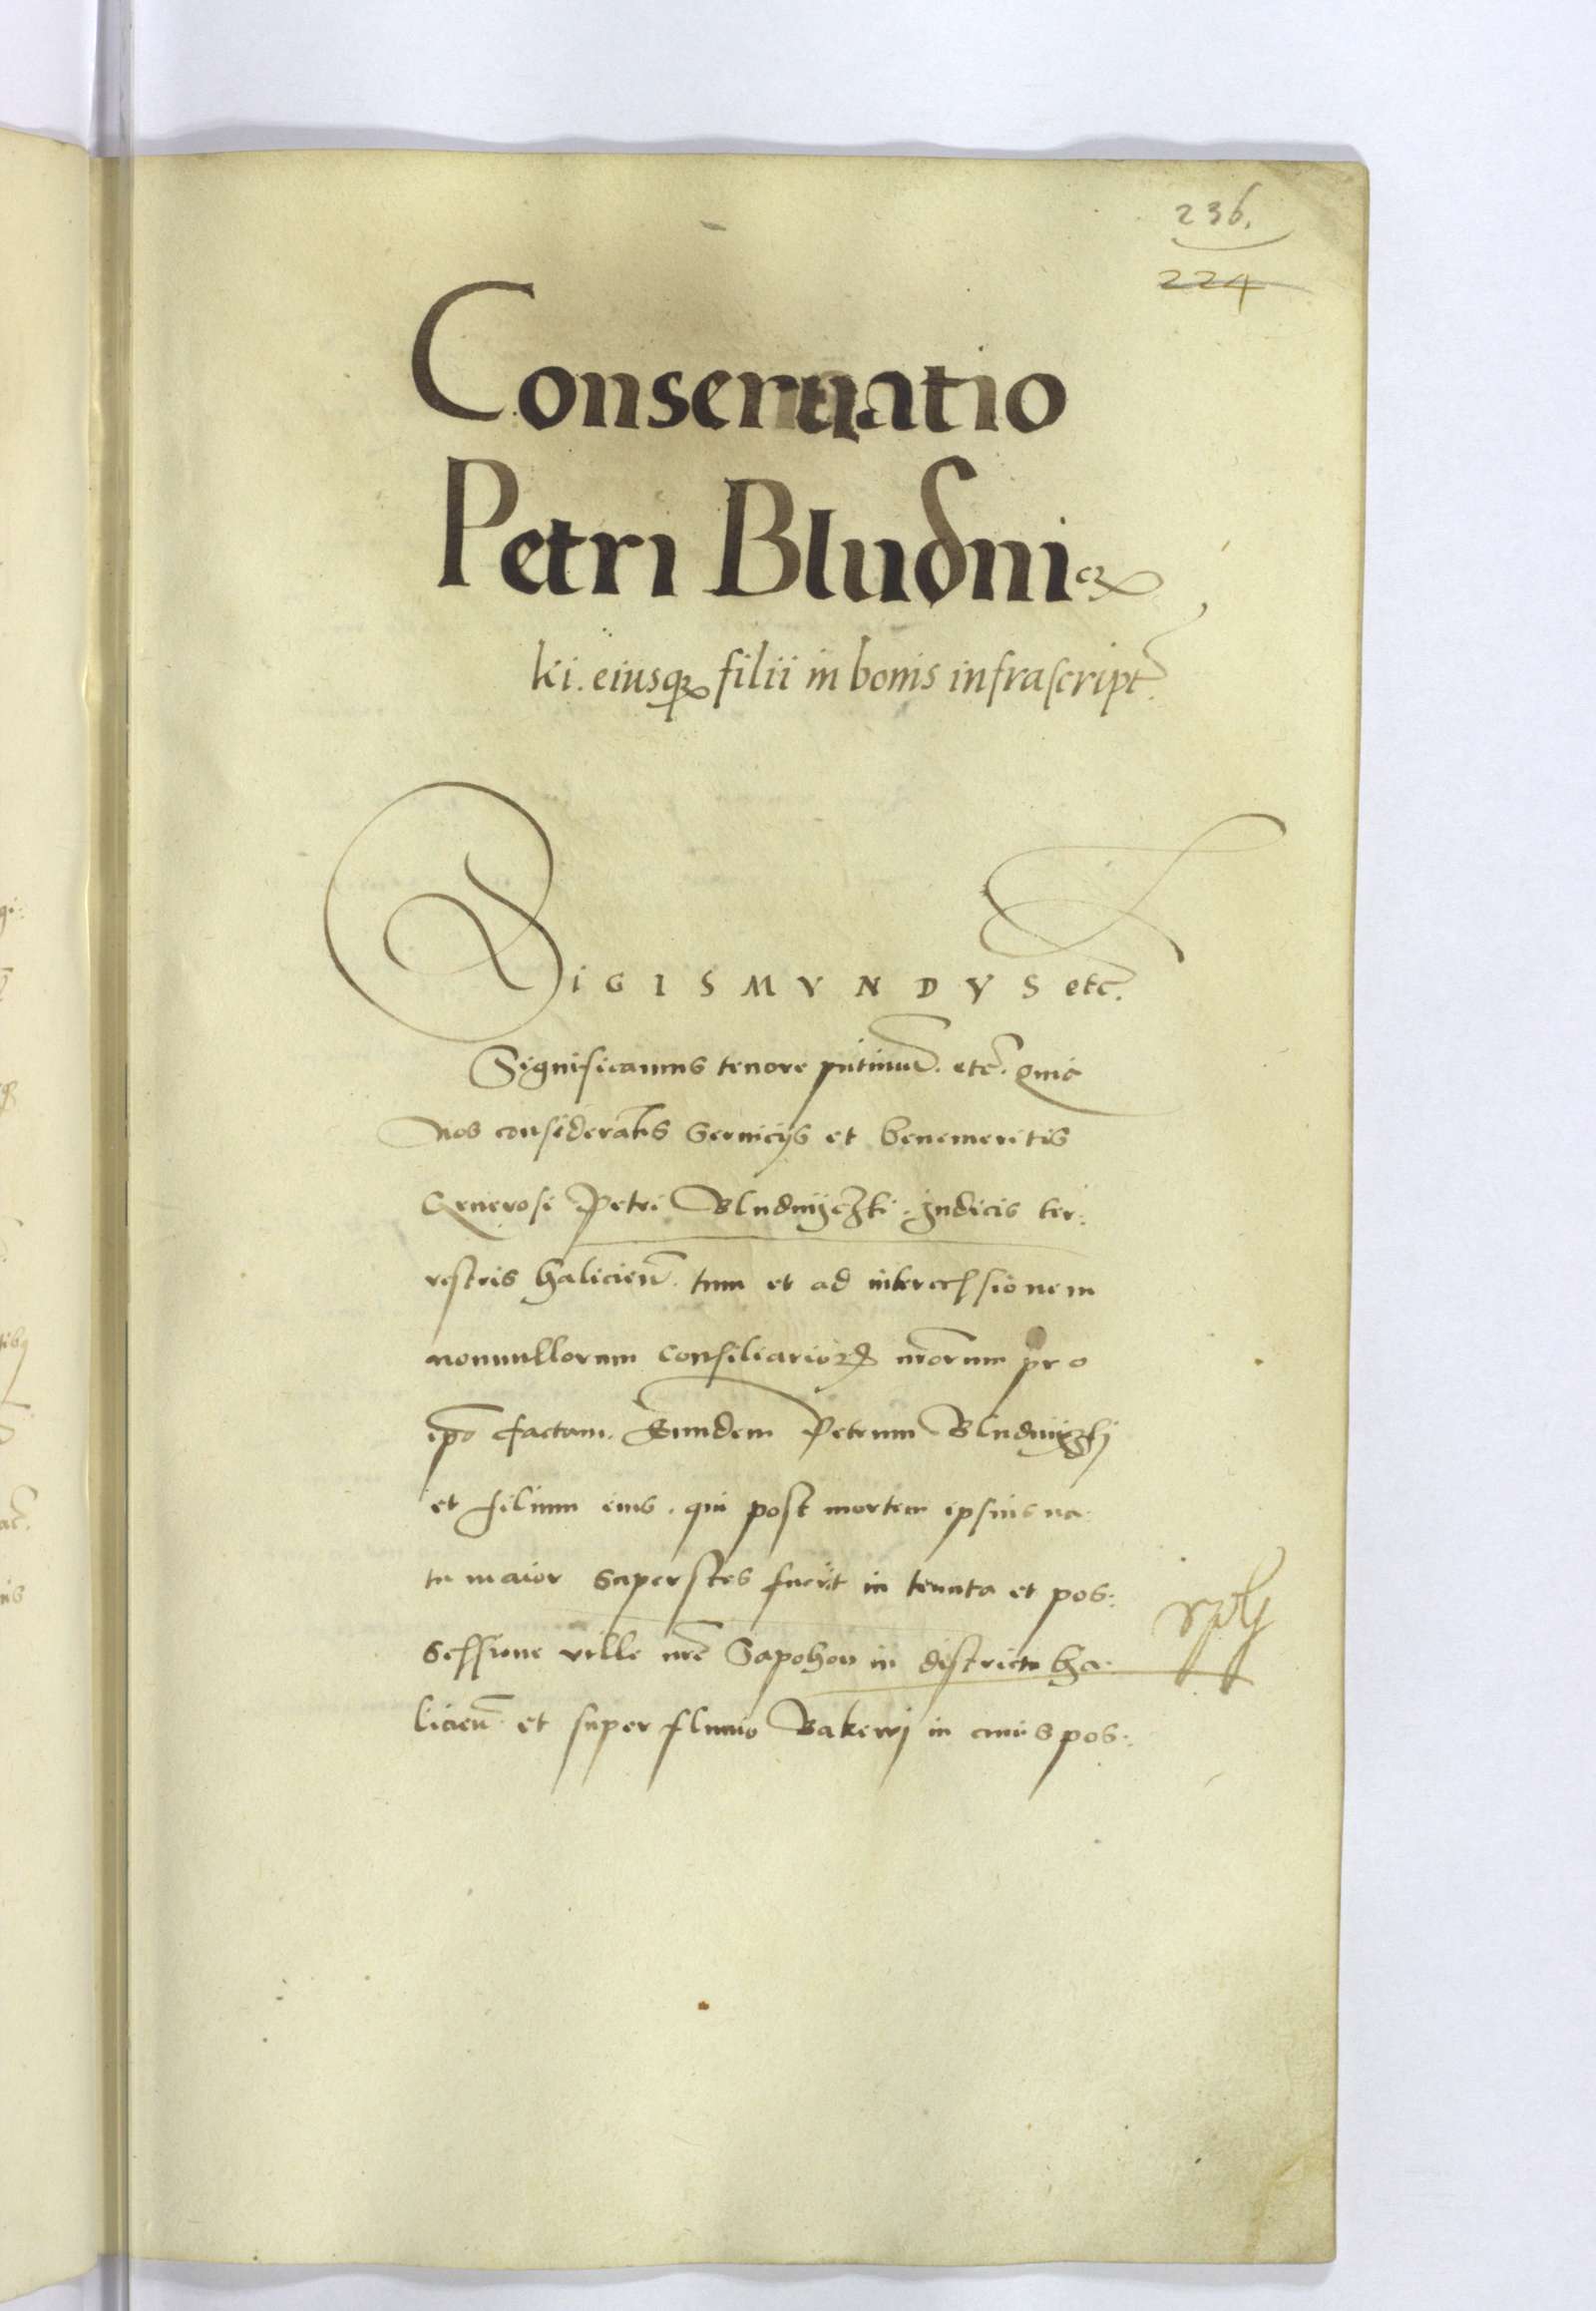 236.
224
Conseruatio
Petri Bludnicz
ki. eiusq3 filii in bonis infrascript.
SIGISMVNDVS etc.
Significamus tenore pntium. etc. Quia
Nos consideratis seruicijs et benemeritis
Generosi Petri Bludnijczki. Judicis ter:
restris halicien. tum et ad intercessionem
nonnullorum consiliarior nrorum pro
ipo factam. Eundem Petrum Bludnijczkj
et filium eius. qui post mortem ipsius na
tu maior superstes fuerit in tenuta et pos:
sessione ville nre Sapohow in districtu ha
licien et super fluuio Bakewj in cuius pos: